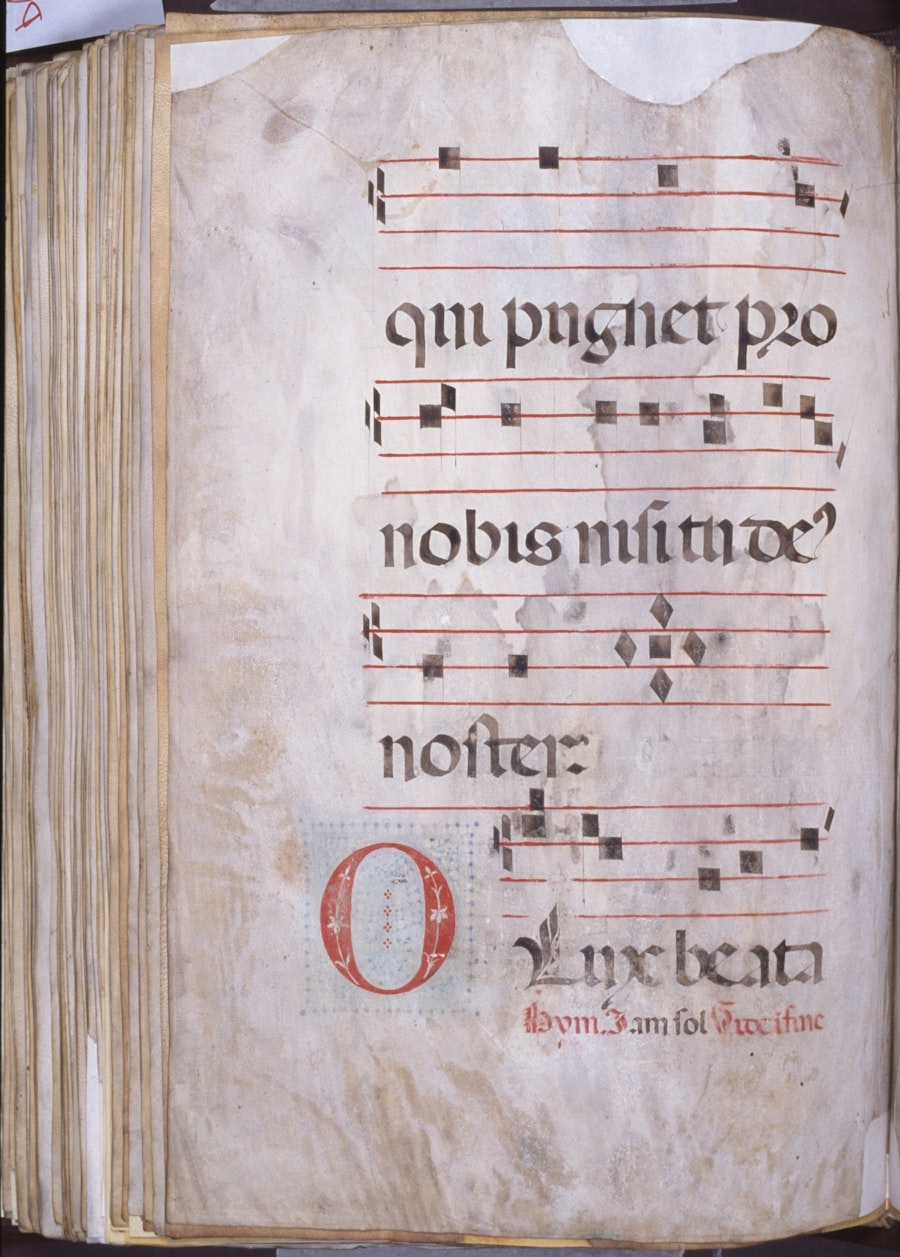 qui pugnet pro
nobis nisi tu de⁹
noster:
O Lux beata
Hym. Iam sol Vide i fine